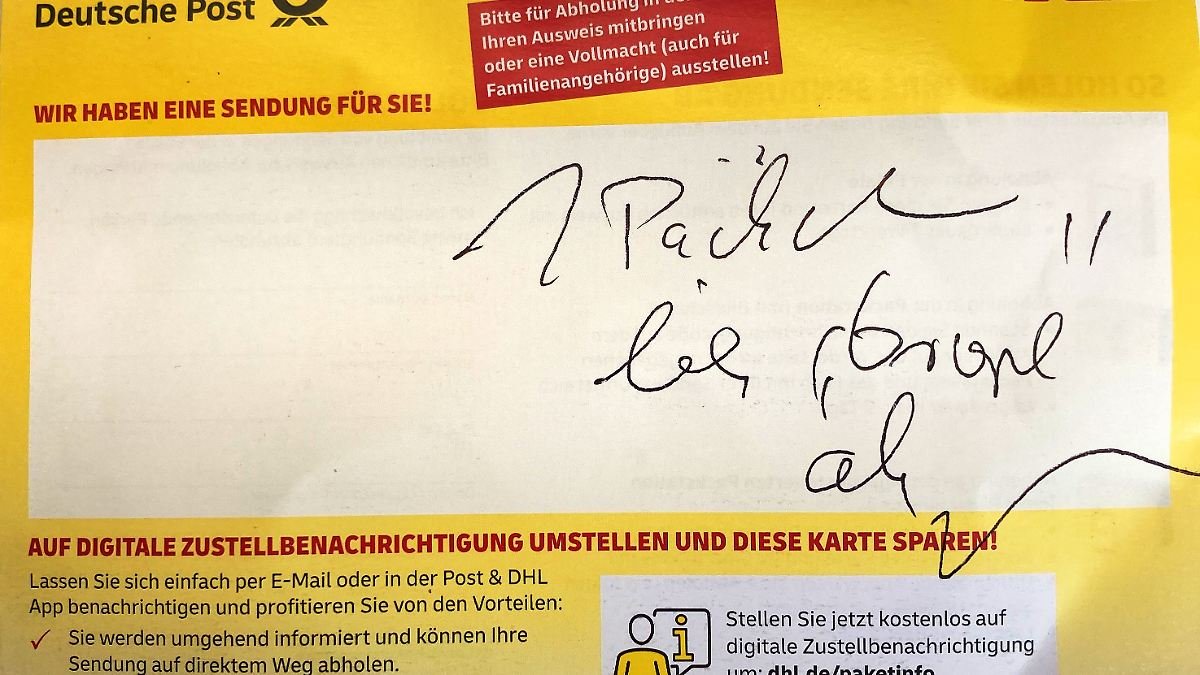 Deutsche Post
Bitte für Abholung in
Ihren Ausweis mitbringen
oder eine Vollmacht (auch für
Familienangehörige) ausstellen!
WIR HABEN EINE SENDUNG FÜR SIE!
1
bei
ab
AUF DIGITALE ZUSTELLBENACHRICHTIGUNG UMSTELLEN UND DIESE KARTE SPAREN!
Lassen Sie sich einfach per E-Mail oder in der Post & DHL
App benachrichtigen und profitieren Sie von den Vorteilen:
✓ Sie werden umgehend informiert und können Ihre
Sendung auf direktem Weg abholen.
Stellen Sie jetzt kostenlos auf
digitale Zustellbenachrichtigung
um: dhl.de/paketinfo